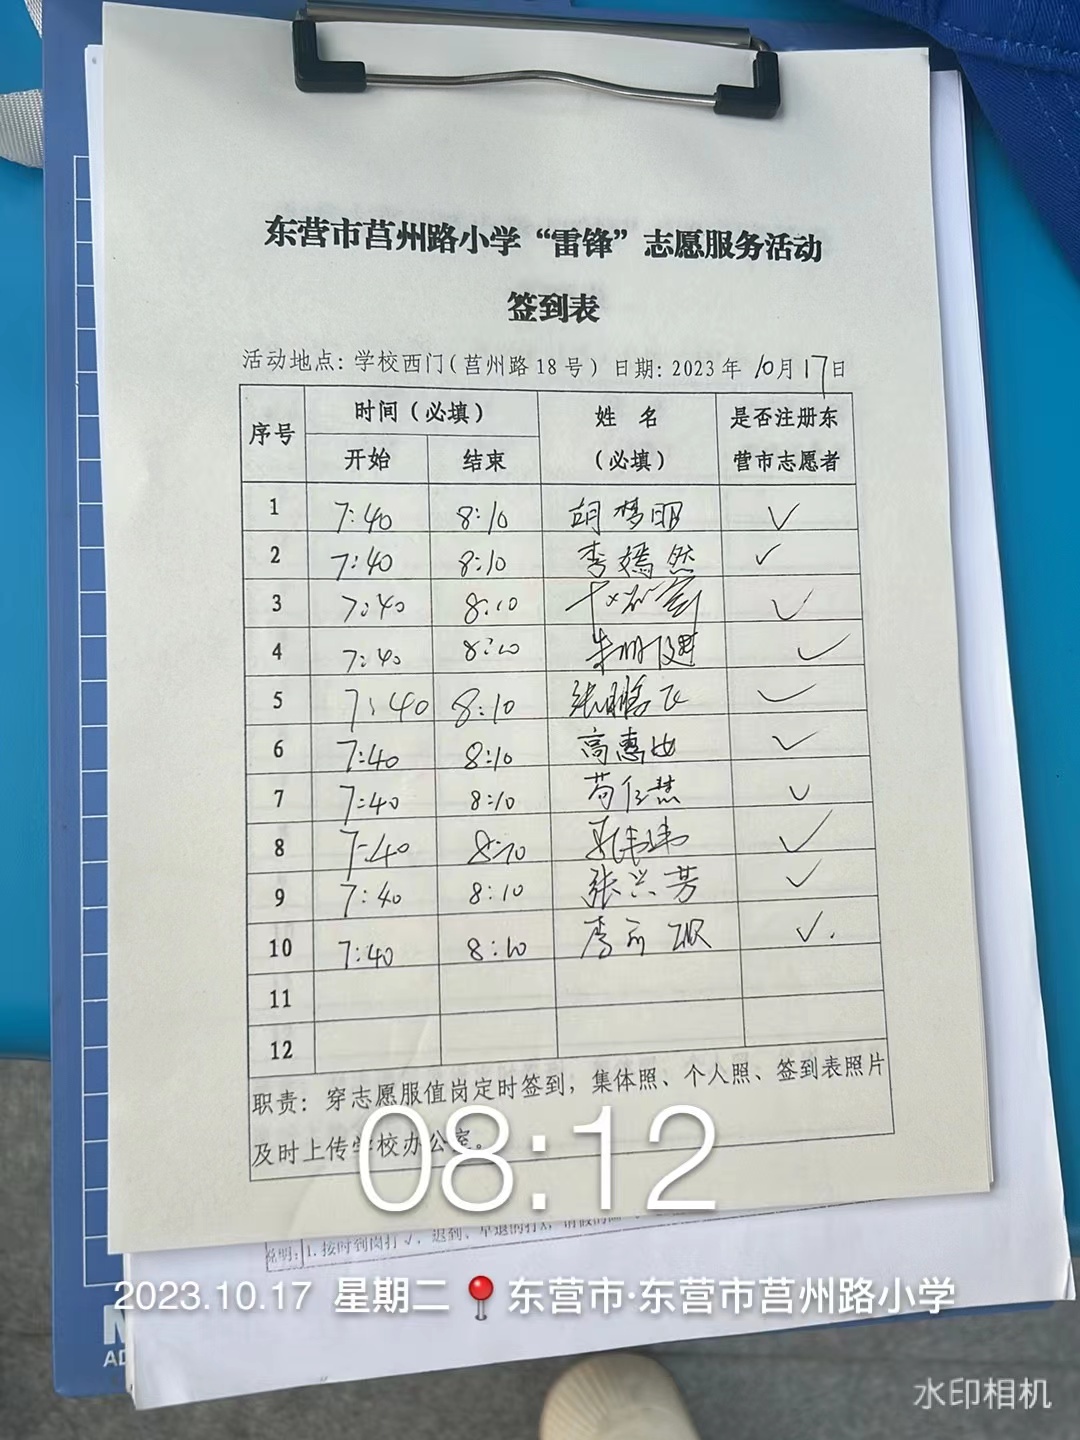 东营市莒州路小学“雷锋”志愿服务活动
签到表
活动地点: 学校西门(莒州路18号) 日期: 2023年 10月17日
序号 时间(必填) 姓 名 是否注册东
开始 结束 (必填) 营市志愿者
1 7:40 8:10 胡梦明 ✓
2 7:40 8:10 李嫣然 ✓
3 7:40 8:10 ✓
4 7:40 8:10 朱明 ✓
5 7:40 8:10 张鹏飞 ✓
6 7:40 8:10 高惠 ✓
7 7:40 8:10 ✓
8 7:40 8:10 ✓
9 7:40 8:10 张兴芳 ✓
10 7:40 8:10 李 ✓.
11
12
职责: 穿志愿服值岗定时签到, 集体照、个人照、签到表照片
及时上传学校办公室。
08:12
说明: 1.按时到岗打√, 迟到、早退的打
2023.10.17 星期二 东营市·东营市莒州路小学
水印相机